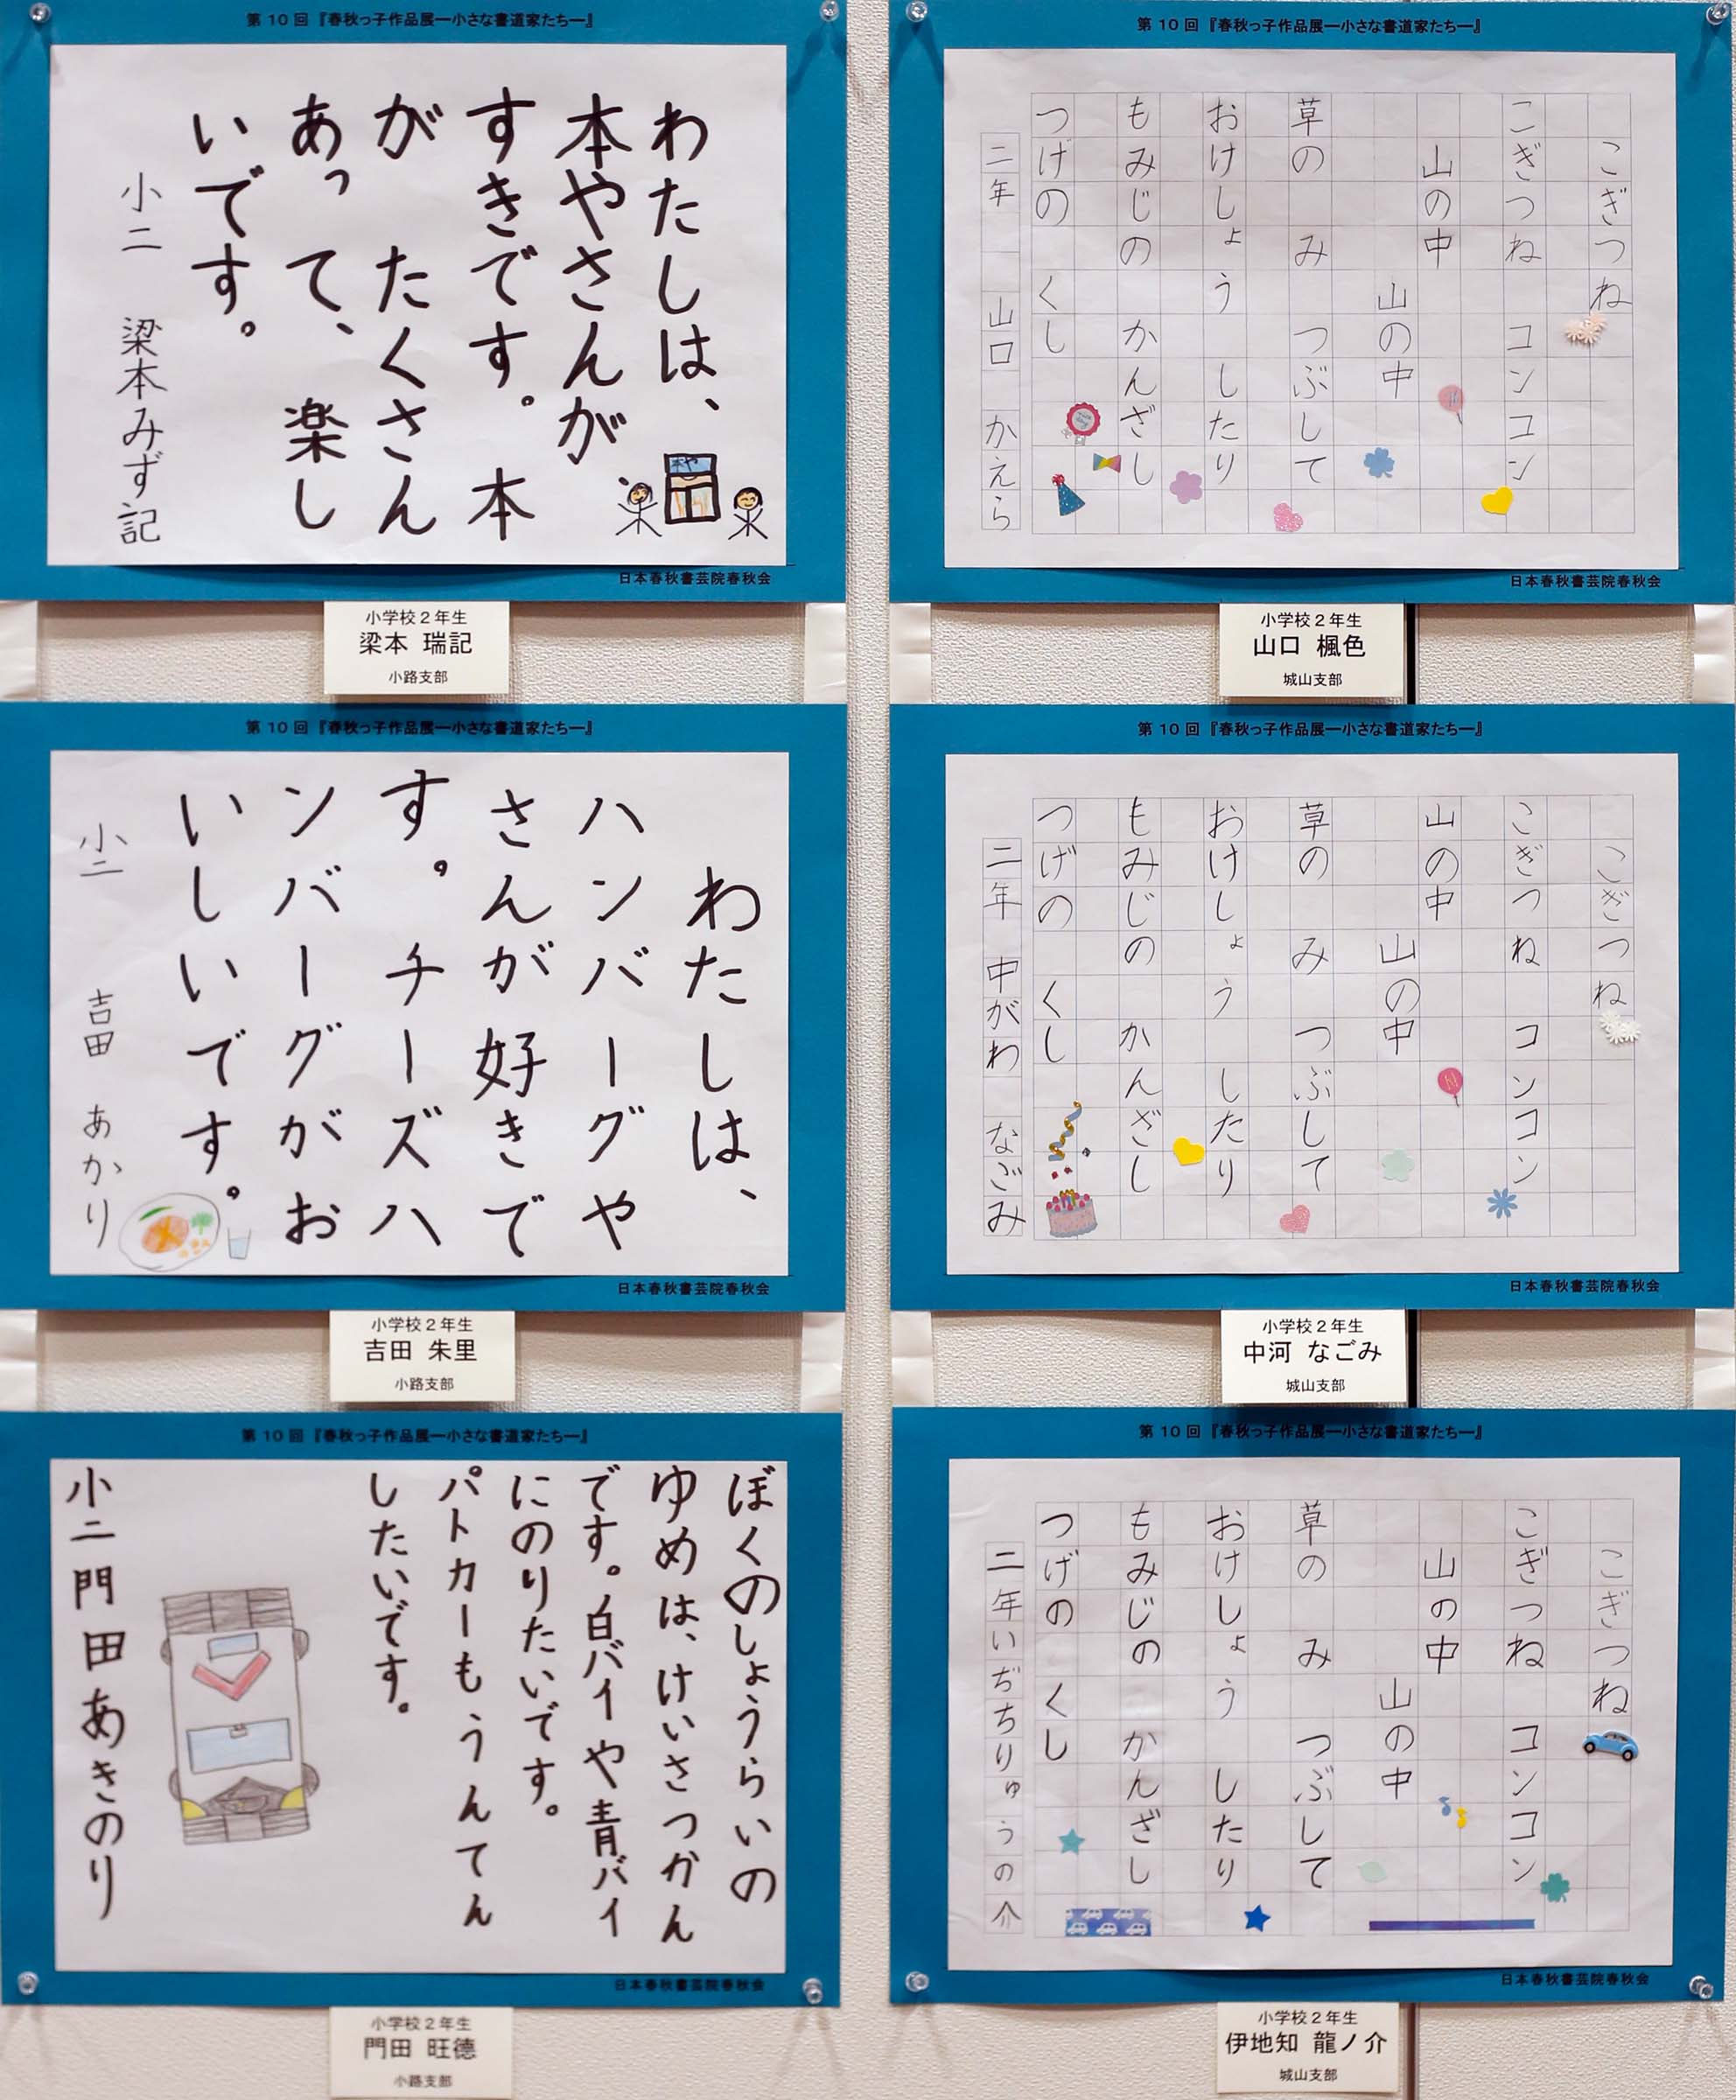 第10回『春秋っ子作品展―小さな書道家たち―』
わたしは、
本やさんが
すきです。本
が たくさん
あって、楽し
いです。
小二 梁本みず記
本や
日本春秋書芸院春秋会
小学校2年生
梁本 瑞記
小路支部
第10回『春秋っ子作品展―小さな書道家たち―』
こぎつね
こぎつね コンコン
山の中
山の中
草の み つぶして
おけしょう したり
もみじの かんざし
つげの くし
二年 山口 かえら
日本春秋書芸院春秋会
小学校2年生
山口 楓色
城山支部
第10回『春秋っ子作品展―小さな書道家たち―』
わたしは、
ハンバーグや
さんが好きで
す。チーズハ
ンバーグがお
いしいです。
小二 吉田 あかり
日本春秋書芸院春秋会
小学校2年生
吉田 朱里
小路支部
第10回『春秋っ子作品展―小さな書道家たち―』
こぎつね
こぎつね コンコン
山の中
山の中
草の み つぶして
おけしょう したり
もみじの かんざし
つげの くし
二年 中がわ なごみ
日本春秋書芸院春秋会
小学校2年生
中河 なごみ
城山支部
第10回『春秋っ子作品展―小さな書道家たち―』
ぼくのしょうらいの
ゆめは、けいさつかん
です。白バイや青バイ
にのりたいです。
パトカーもうんてん
したいです。
小二門田あきのり
日本春秋書芸院春秋会
小学校2年生
門田 旺德
小路支部
第10回『春秋っ子作品展―小さな書道家たち―』
こぎつね
こぎつね コンコン
山の中
山の中
草の み つぶして
おけしょう したり
もみじの かんざし
つげの くし
二年いぢちりゅうの介
日本春秋書芸院春秋会
小学校2年生
伊地知 龍ノ介
城山支部